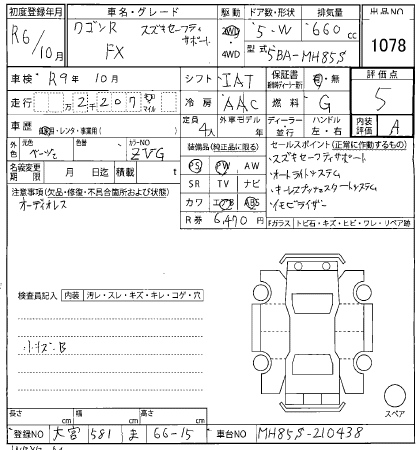 初度登録年月 車名・グレード 駆動 ドア数・形状 排気量 出品NO
R6/10月 ワゴンR スズキセーフティサポート 2WD 5-W 660cc 1078
FX 4WD 型式 5BA-MH85S
車検 R9年 10月 シフト IAT 保証書 有・無 評価点
走行 2万2207 km マイル 冷房 AAC 燃料 G 5
車歴 自家・レンタ・事業用( ) 定員 4人 外車モデル 年 ディーラー・並行 ハンドル 左・右 内装評価 A
外色 元色 ベージュ 色替 カラーNO ZVG 装備品(純正品に限る) セールスポイント(正常に作動するもの)
名義変更期限 月 日迄 積載 t PS PW AW ・スズキセーフティサポート
注意事項(欠品・修復・不具合箇所および状態) SR TV ナビ ・オートライトシステム
オーディオレス カワ エアB ABS ・キーレスプッシュスタートシステム
R券 6,470円 ・イモビライザー
Fガラス トビ石・キズ・ヒビ・ワレ・リペア跡
検査員記入 内装 汚レ・スレ・キズ・キレ・コゲ・穴
小キズB
スペア
長さ cm 幅 cm 高さ cm
登録NO 大宮 581 ま 66-15 車台NO MH85S-210438